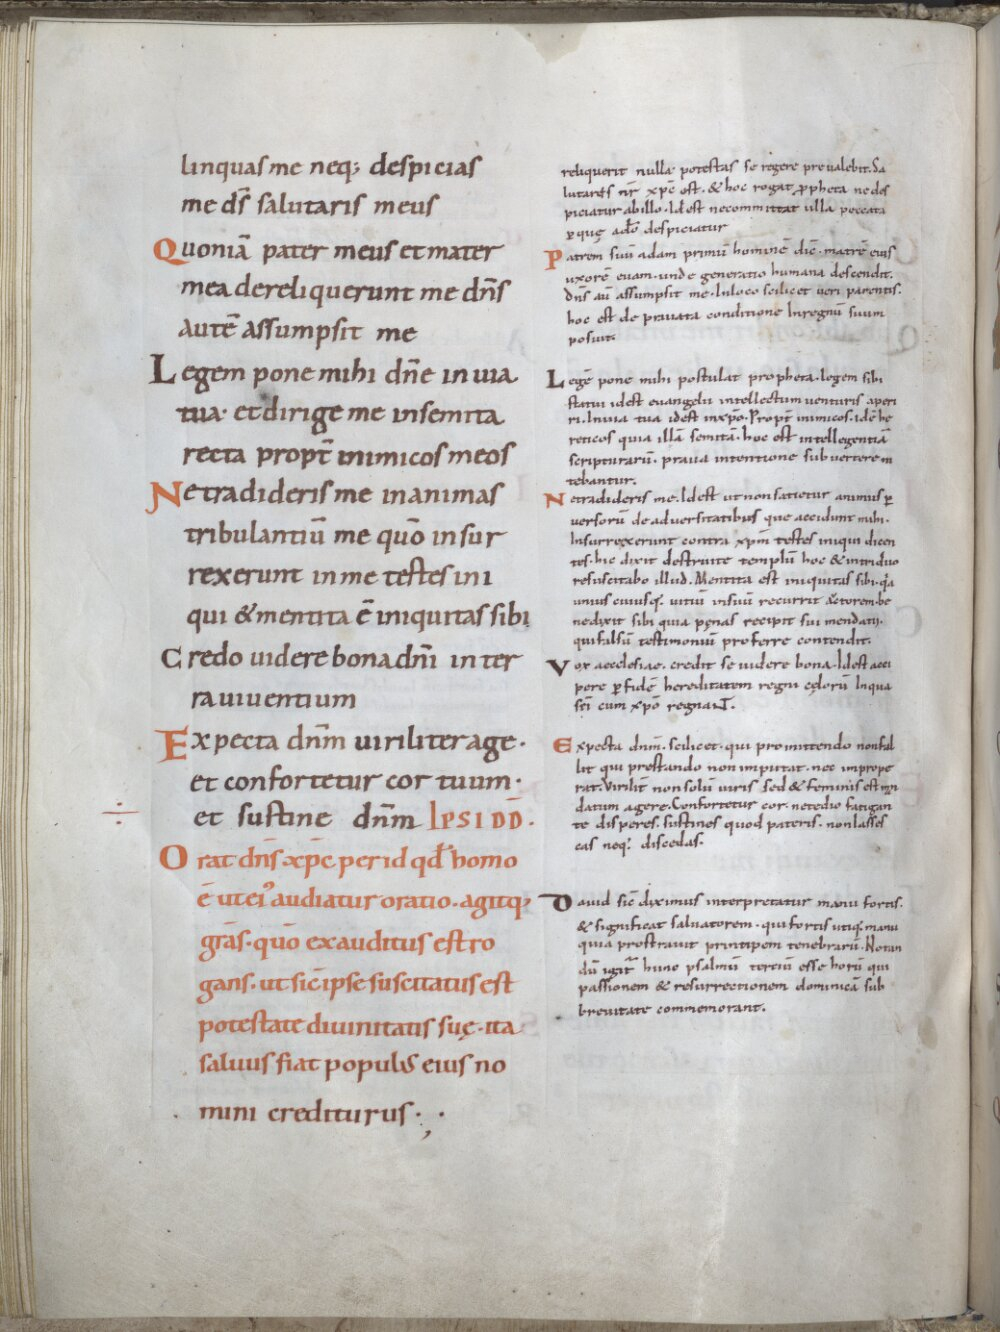 linquas me neq; despicias
me ds̄ salutaris meus
Quoniā pater meus et mater
mea dereliquerunt me dn̄s
autē assumpsit me
Legem pone mihi dn̄e in uia
tua· et dirige me in semita
recta propt̄ inimicos meos
Ne tradideris me in animas
tribulantiū me quō insur
rexerunt in me testes ini
qui & mentita ē iniquitas sibi
Credo uidere bona dn̄i in ter
ra uiuentium
Expecta dn̄m uiriliter age·
et confortetur cor tuum·
et sustine dn̄m IPSI DD̄·
Orat dn̄s xp̄c per id qd̄ homo
ē ut ei' audiatur oratio· agitq;
grās· quō exauditus est ro
gans· ut sic̄ ipse suscitatus est
potestate diuinitatis suę· ita
saluus fiat populus eius no
mini crediturus·,·
reliquerit nulla potestas se regere preualebit. Sa
lutares nr̄ xp̄c est· & hoc rogat ꝓpheta ne des
piciatur ab illo· Id est ne committat ulla peccata
ꝑ quę a dō despiciatur
Patrem suū adam primū hominē dic̄· matrē eius
uxorē euam· unde generatio humana descendit·
Dn̄s aū assumpsit me· In loco scilicet ueri parentis·
hoc est de prauata conditione In regnū suum
posuit·
Legē pone mihi postulat propheta· legem sibi
statui id est euangelii intellectum uenturis aperi
ri· In uia tua id est in xp̄o· Propt̄ inimicos· id ē he
reticos quia illā semitā· hoc est intellegentiā
scripturarū· praua intentione subuertere ni
tebantur·
Ne tradideris me· Id est ut non satietur animus ꝑ
uersorū de aduersitatibus que accidunt mihi·
Insurrexerunt contra xp̄m testes iniqui dicen
tes· hic dixit destruite templū hoc & in triduo
resuscitabo illud. Mentita est iniquitas sibi· q̄a
unius cuiusq; uitiū in suū recurrit actorem· be
ne dixit sibi quia pęnas recipit sui mendatii·
qui falsū testimoniū proferre contendit·
Vox aecclesiae· credit se uidere bona· Id est acci
pere ꝑ fidē hereditatem regni cęlorū In qua
sc̄i cum xp̄o regnant·
Expecta dn̄m· scilicet· qui promittendo non fal
lit qui prestando non imputat· nec imprope
rat· Virilit̄ non solū uiris sed & feminis est
datum agere· Confortetur cor· ne tedio fatigan
te disperes· sustines quod pateris· non lasses
cas neq; discedas·
Dauid sic̄ diximus interpretatur manu fortis·
& significat saluatorem· qui fortis utiq; manu
quia prostrauit principem tenebrarū· Notan
dū igit̄ hunc psalmū tertiū esse horū qui
passionem & resurrectionem dominicā sub
breuitate commemorant·